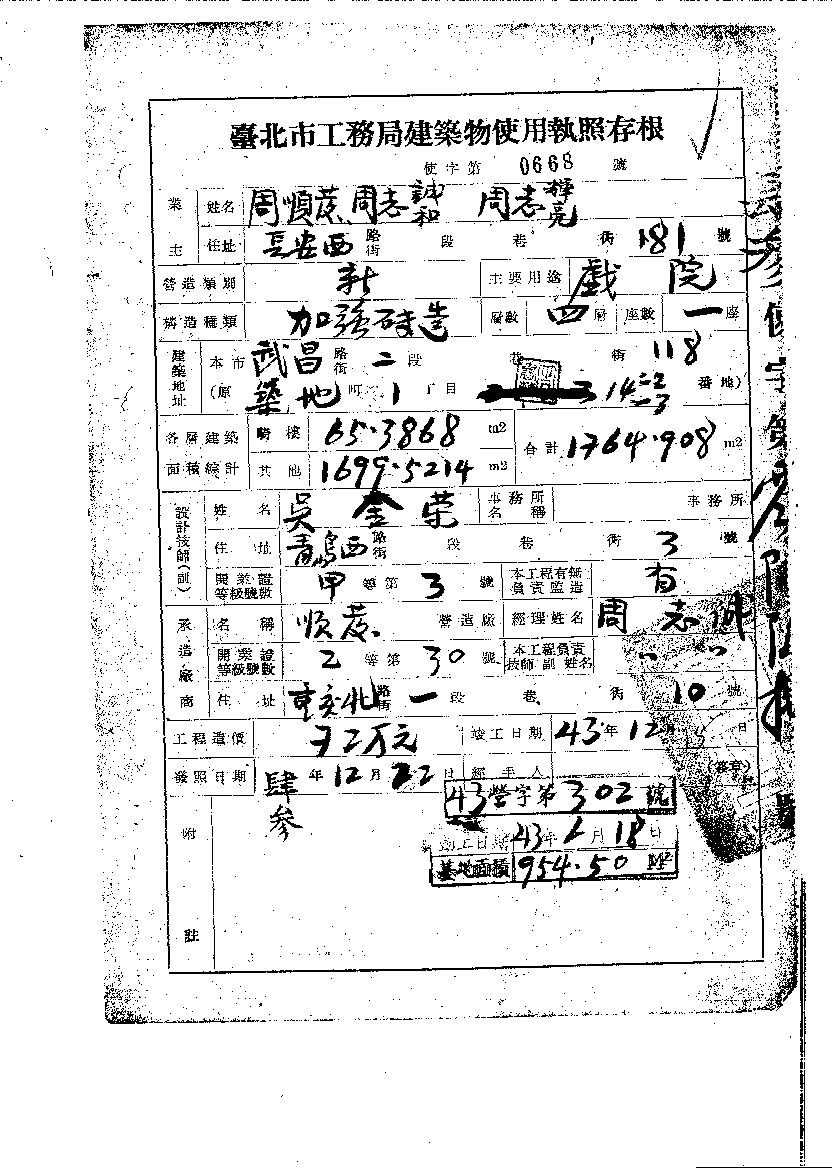 臺北市工務局建築物使用執照存根
使字第 0668 號
業主 姓名 周順茂 周志誠和 周志樺亮
住址 長安西路街 段 巷 街 181 號
營造類別 新 主要用途 戲院
構造種類 加強磚造 層數 四層 座數 一座
建築地址 本市 武昌路街 二段 巷 街 118
(原 築地町 1 丁目 14-2 -3 番地)
各層建築面積總計 騎樓 65.3868 m2 合計 1764.908 m2
其他 1699.5214 m2
設計技師(副) 姓名 吳金荣 事務所名稱 事務所
住址 青島西路街 段 巷 街 3 號
開業證等級號數 甲 等第 3 號 本工程有無負責監造 有
承造廠商 名稱 順茂 營造廠 經理姓名 周志
開業證等級號數 乙 等第 30 號 本工程負責技師副姓名 〃 〃
住址 重慶北路街 一段 巷 街 10 號
工程造價 万元 竣工日期 43年12月 日
發照日期 肆參年12月22日 經手人 (簽章)
43營字第302號
動工日期 43年 月18日
基地面積 954.50
附註